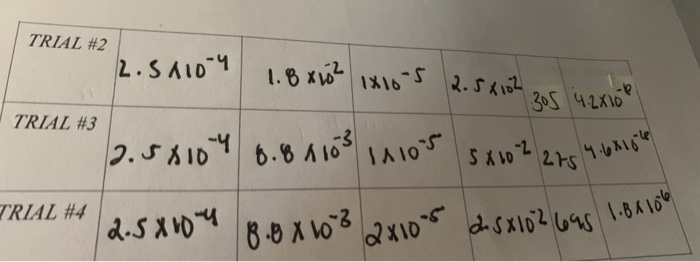 TRIAL #2 2.5 x10⁻⁴ 1.8 x10⁻² 1x10⁻⁵ 2.5 x10⁻² 305 4.2x10⁻⁶
TRIAL #3 2.5 x10⁻⁴ 8.8 x10⁻³ 1x10⁻⁵ 5 x10⁻² 275 4.6x10⁻⁶
TRIAL #4 2.5 x10⁻⁴ 8.8 x10⁻³ 2x10⁻⁵ 2.5x10⁻² 695 1.8x10⁻⁶